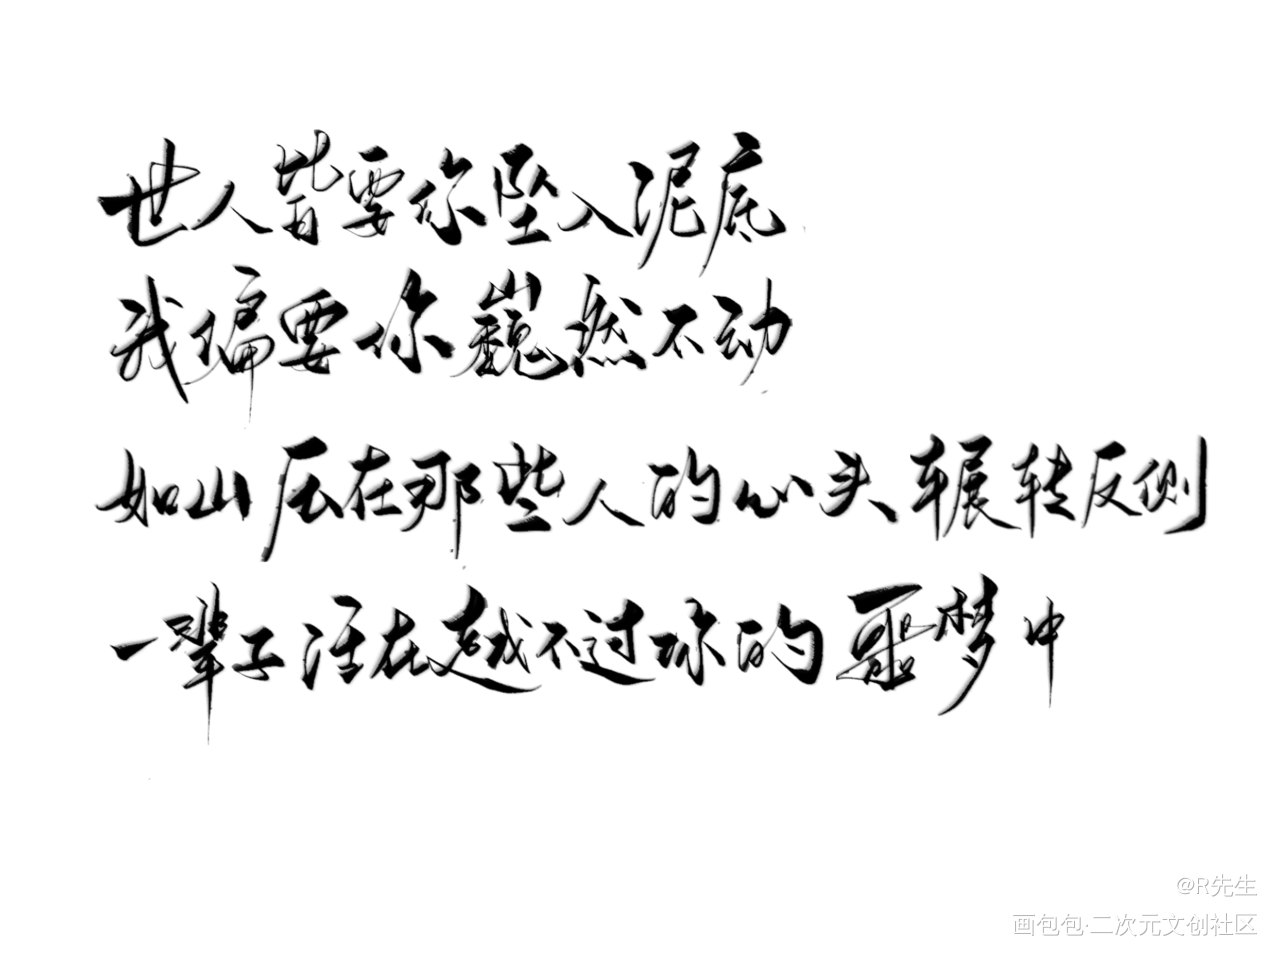 世人皆要你坠入泥底
我偏要你巍然不动
如山压在那些人的心头辗转反侧
一辈子活在越不过你的噩梦中
@R先生
画包包·二次元文创社区